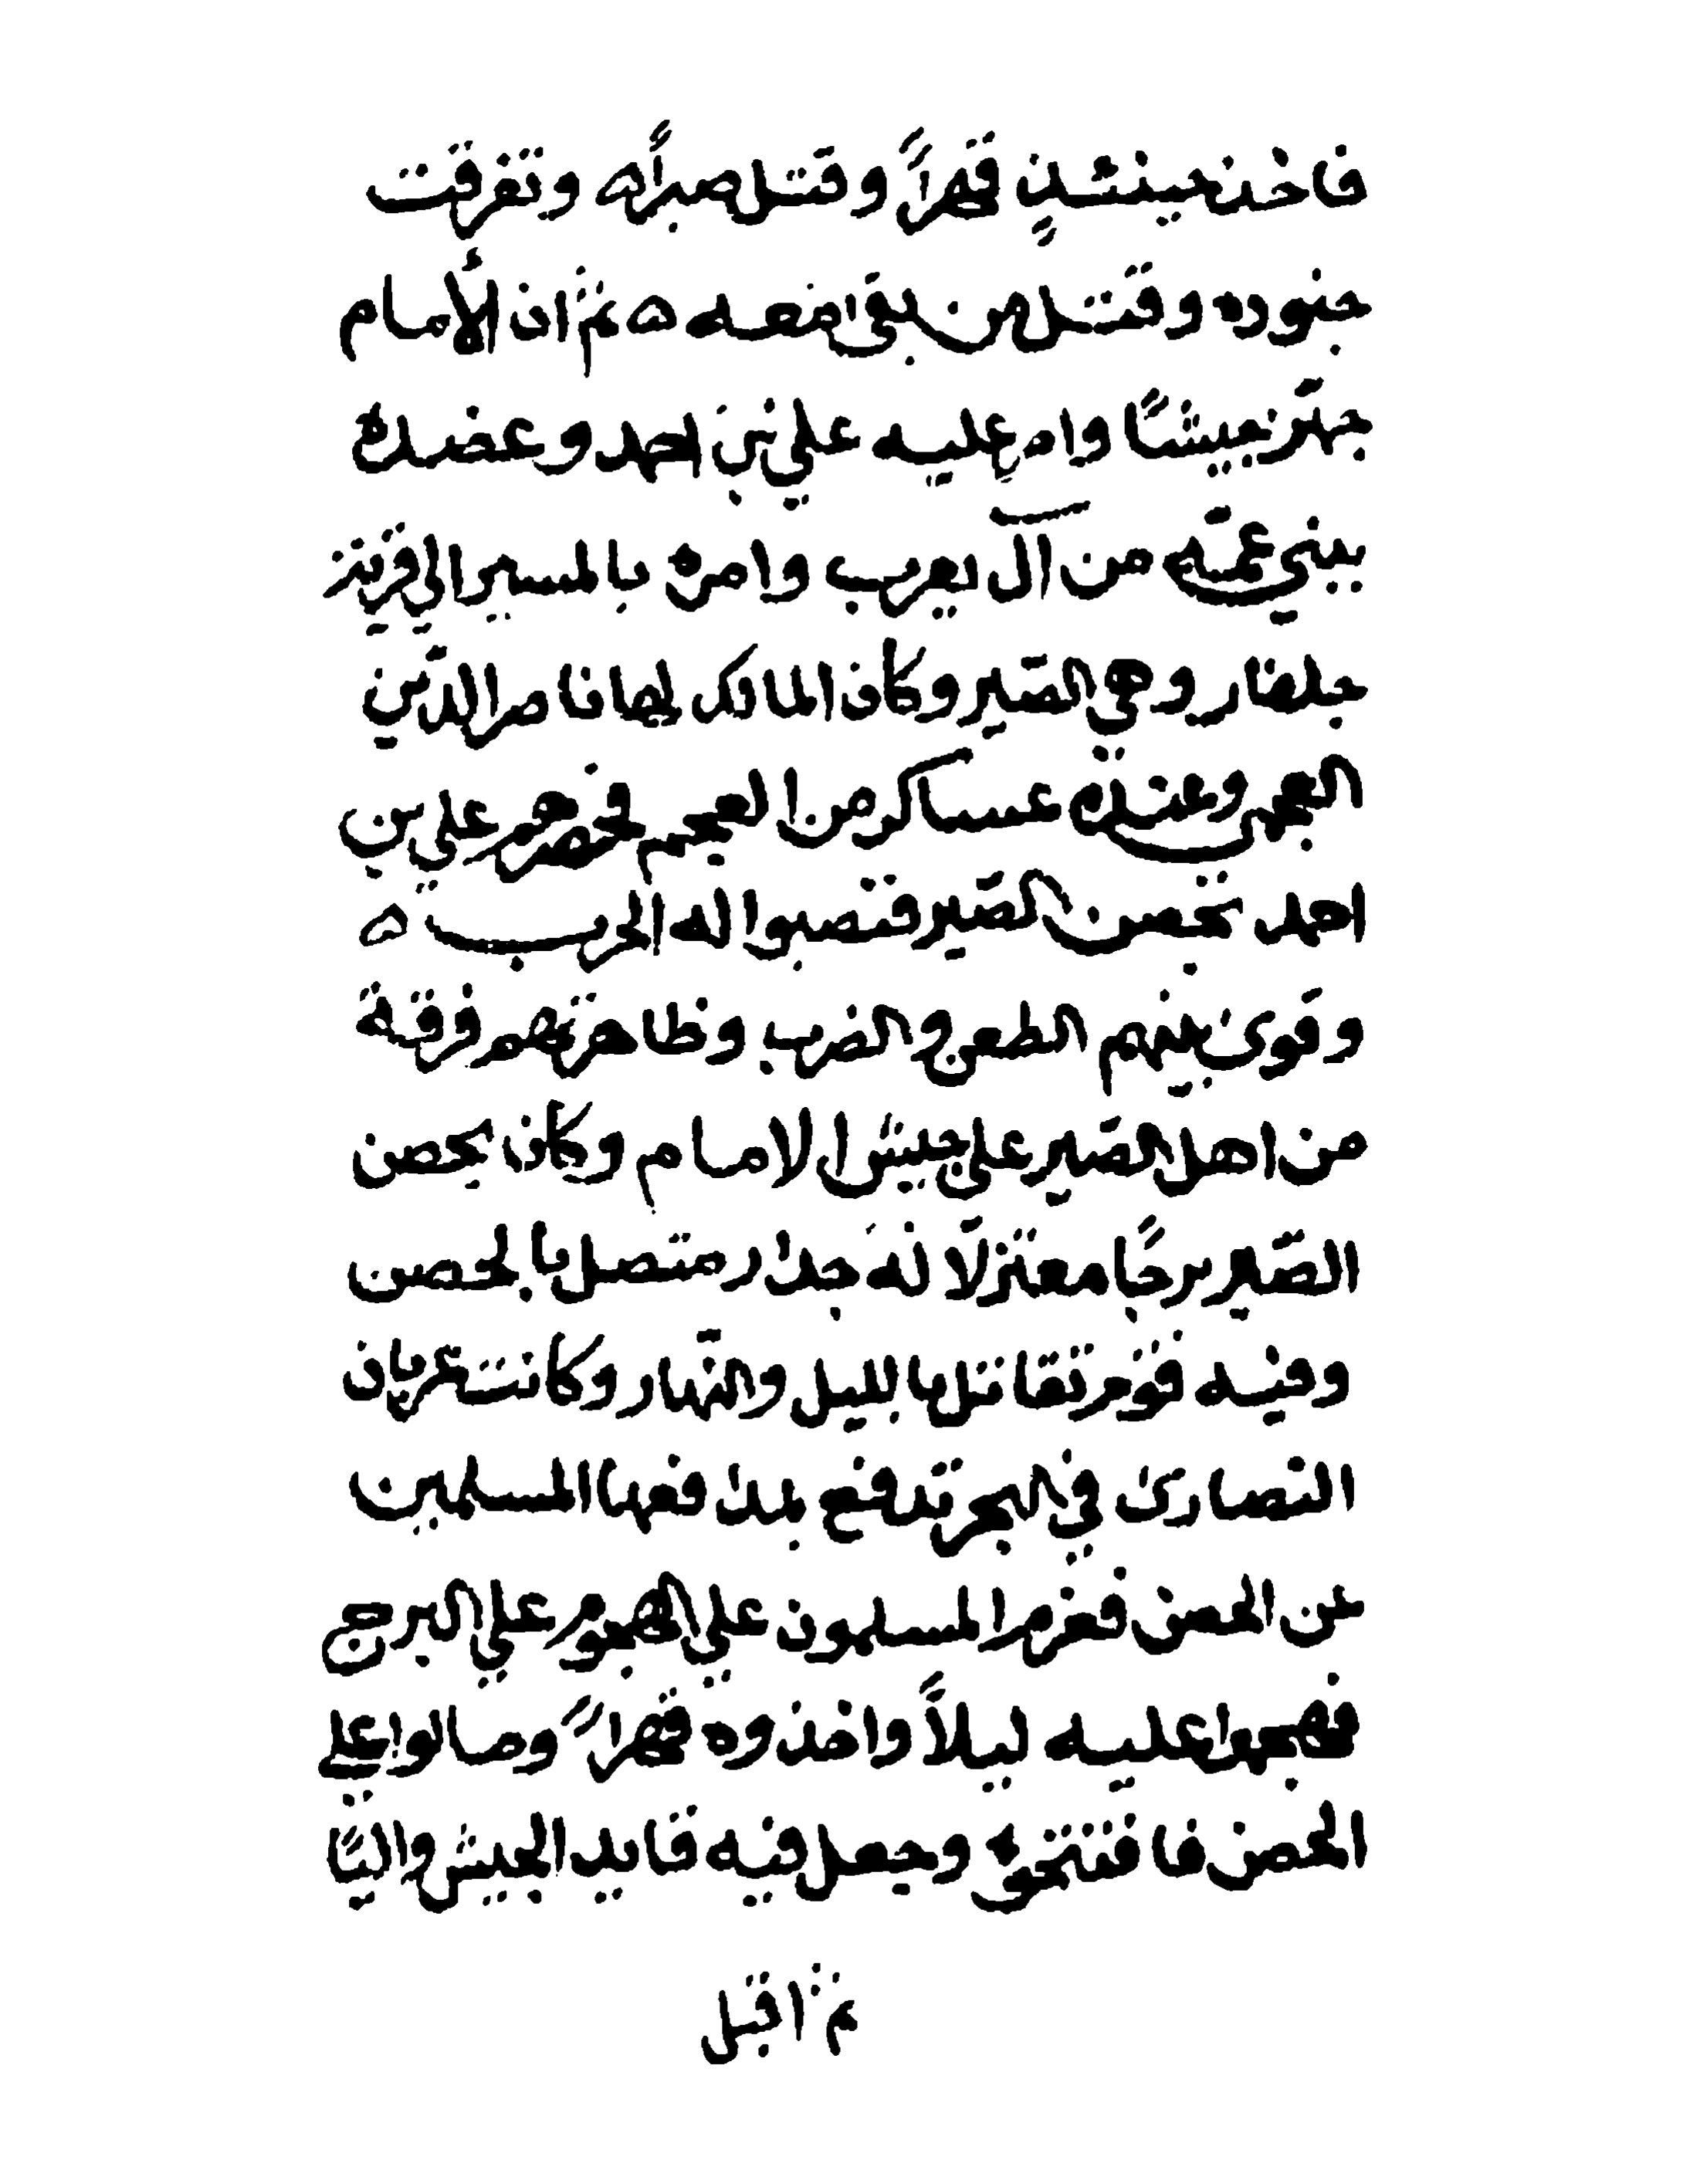 فاخذ حينئذٍ قهراً وقتل صبراً ه وتفرقت
جنوده وقتل من بقى معه ه ثم ان الأمام
جهّز جيشاً وامر عليه علي بن احمد وعضده
ببني عمّه من آل يعرب وامره بالمسير الي قرية
جلفار وهي الصّير وكان المالك لها ناصر الدّين
العجمي وعنده عساكر من العجم فحصرهم علي بن
احمد بحصن الصّير فنصبوا له الحرب ه
وقوى بينهم الطعن والضرب وظاهرتهم فرقة
من اهل الصّير علي جيش الامام وكان بحصن
الصّير برجًا معتزلاً له جدار متصل بالحصن
وفيه قوم تقاتل بالليل والنّهار وكانت غربان
النصارى في البحر تدفع بمدافعها المسلمين
عن الحصن فعزم المسلمون علي الهجوم علي البرج
فهجموا عليه ليلاً واخذوه قهراً وصالوا علي
الحصن فافتتحوه وجعل فيه قايد الجيش واليًا
ثم اقبل